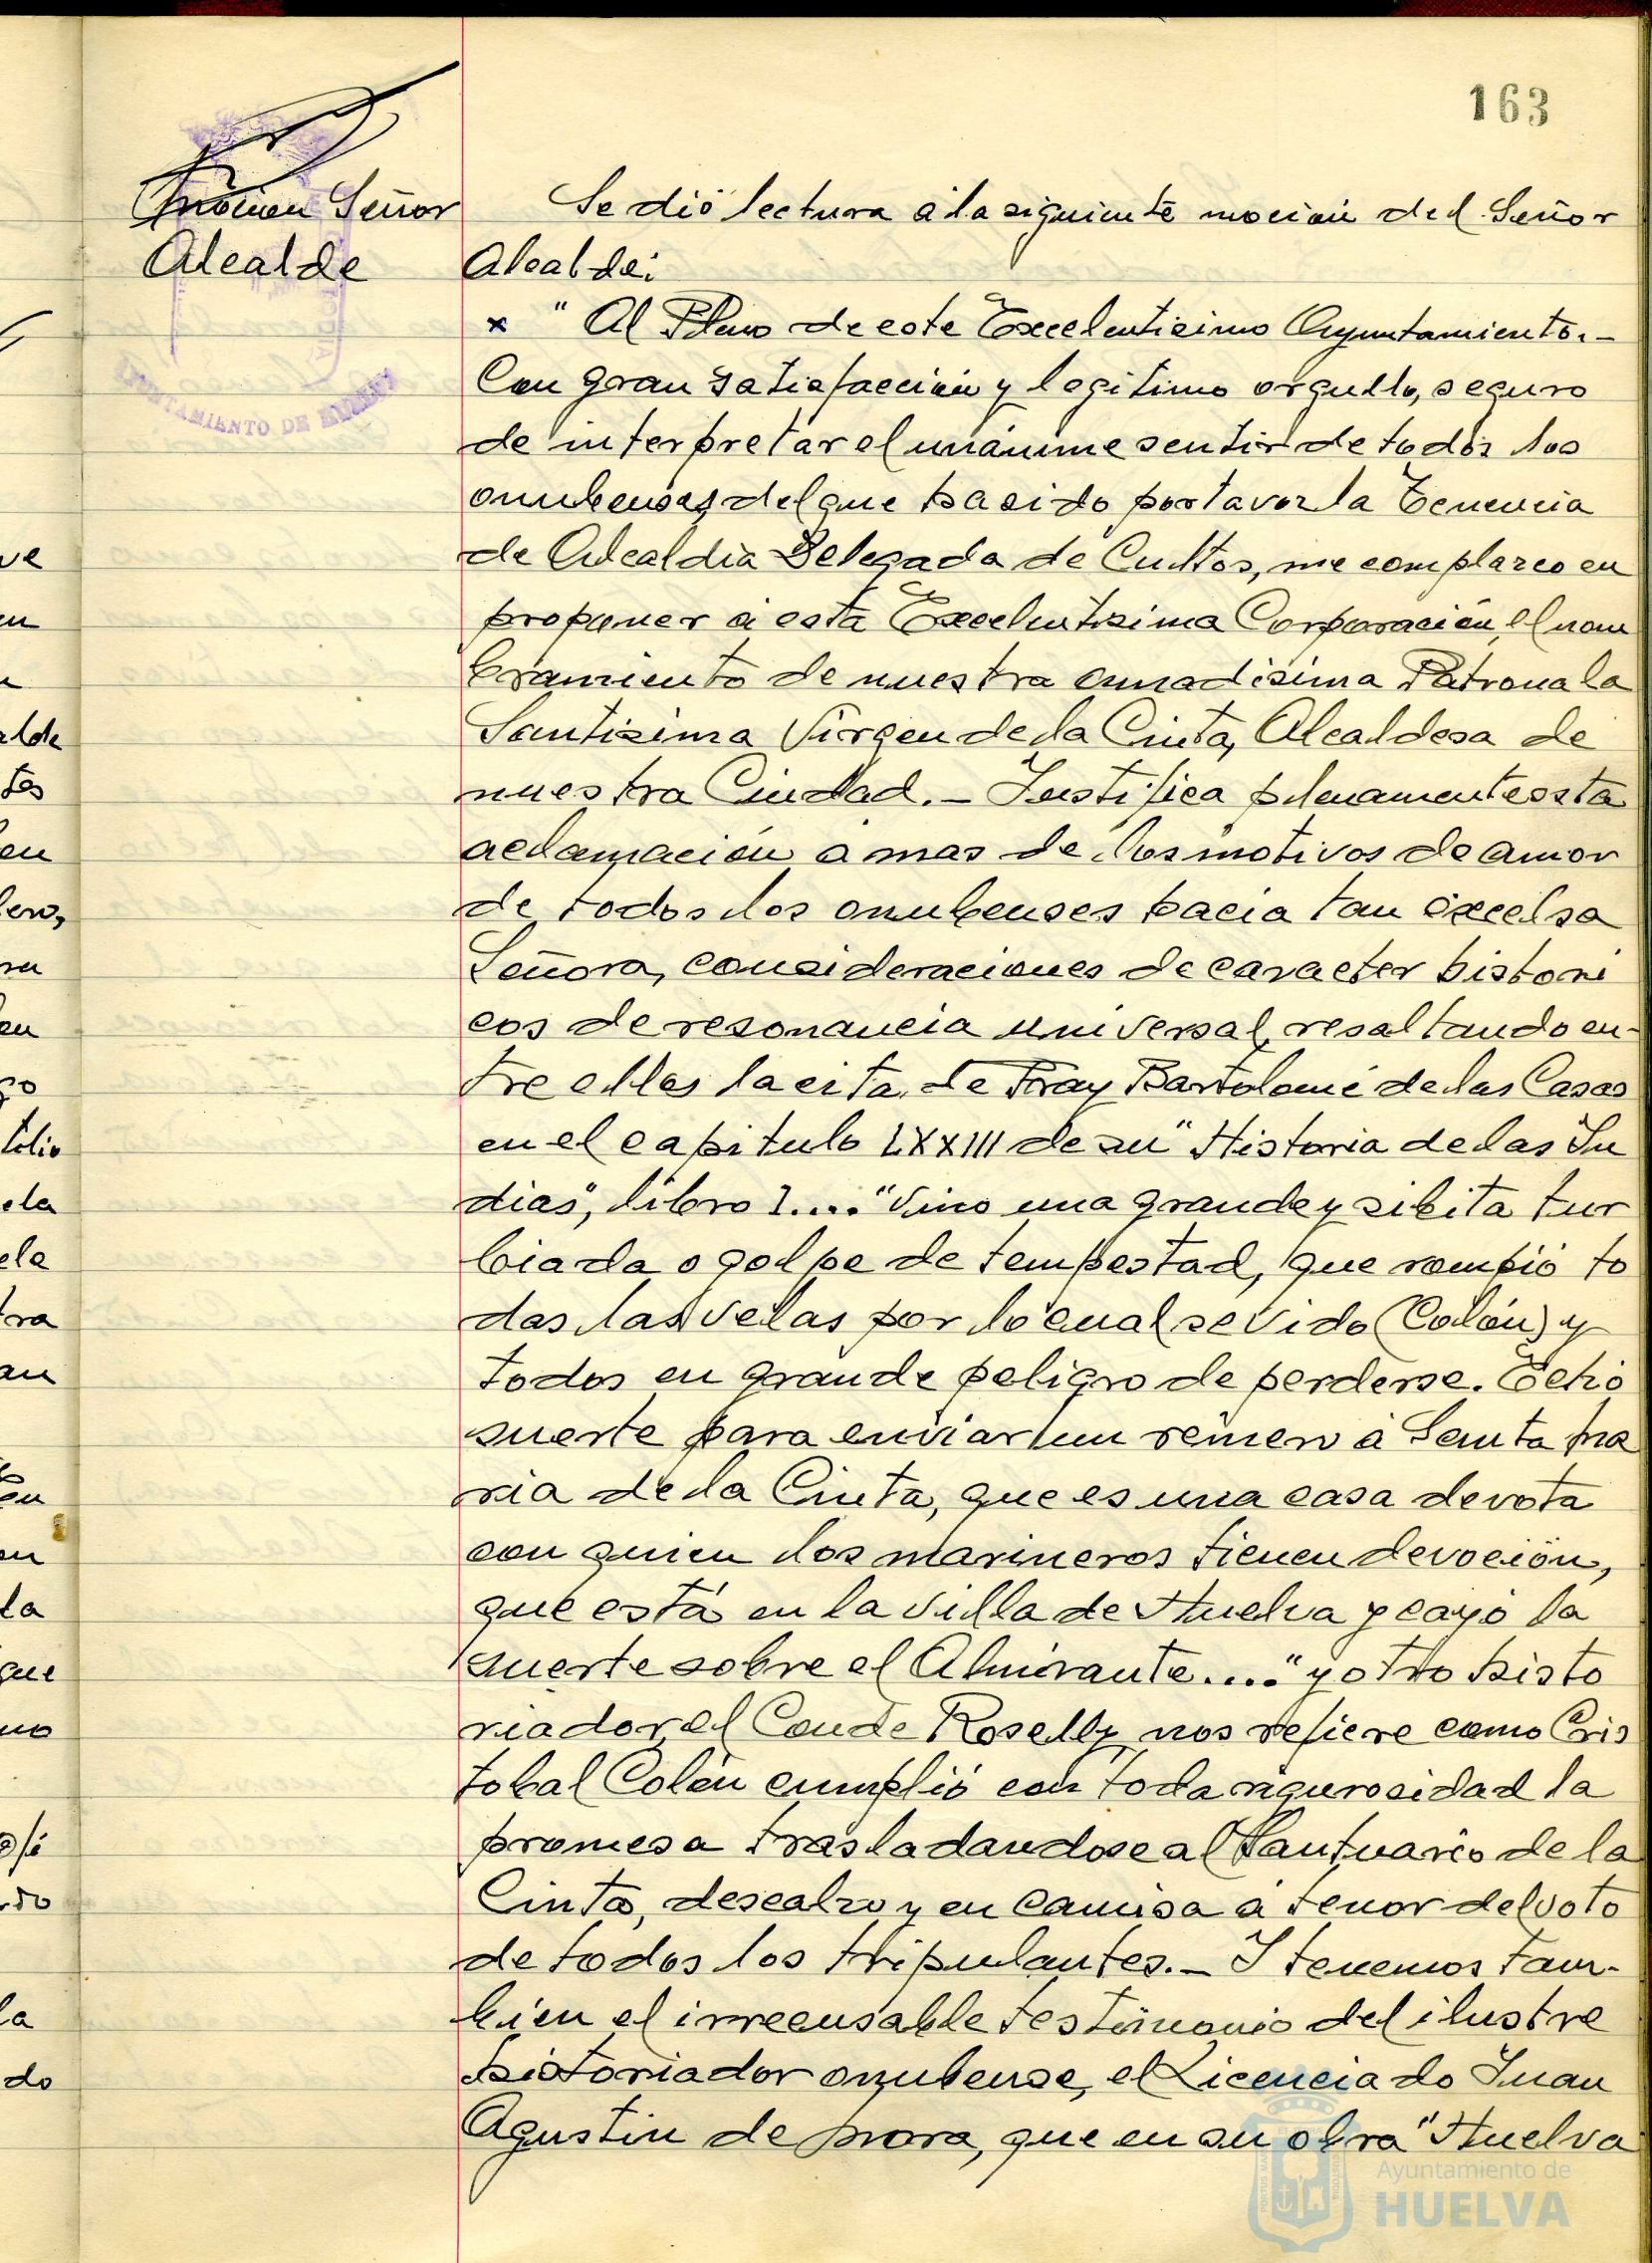 163
Moción Señor
Alcalde
AYUNTAMIENTO DE HUELVA
Se dió lectura a la siguiente moción del Señor
Alcalde:
x " Al Pleno de este Excelentisimo Ayuntamiento.-
Con gran satisfacción y legitimo orgullo, seguro
de interpretar el unánime sentir de todos los
onubenses, del que ha sido portavoz la Tenencia
de Alcaldia Delegada de Cultos, me complazco en
proponer a esta Excelentisima Corporación, el nom
bramiento de nuestra amadisima Patrona la
Santisima Virgen de la Cinta, Alcaldesa de
nuestra Ciudad.- Justifica plenamente esta
aclamación a mas de los motivos de amor
de todos los onubenses hacia tan excelsa
Señora, consideraciones de caracter histori
cos de resonancia universal, resaltando en-
tre ellas la cita de Fray Bartolomé de las Casas
en el capitulo LXXIII de su "Historia de las In
dias", libro I.... "Vino una grande y súbita tur
biada o golpe de tempestad, que rompió to
das las velas por lo cual se vido (Colón) y
todos en grande peligro de perderse. Echó
suerte para enviar un romero a Santa Ma
ria de la Cinta, que es una casa devota
con quien los marineros tienen devoción,
que está en la villa de Huelva y cayó la
suerte sobre el Almirante...." y otro histo
riador el Conde Roselly nos refiere como Cris
tobal Colón cumplió con toda rigurosidad la
promesa trasladandose al Santuario de la
Cinta, descalzo y en camisa a tenor del voto
de todos los tripulantes.- I tenemos tam-
bien el irrecusable testimonio del ilustre
historiador onubense, el Licenciado Juan
Agustin de Mora, que en su obra "Huelva
Ayuntamiento de
HUELVA